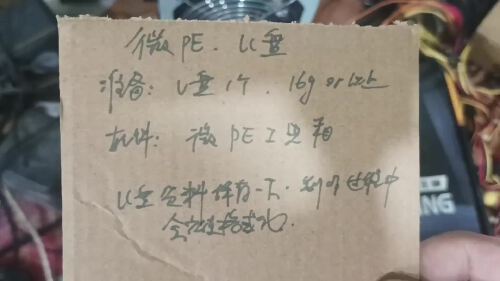 微PE. U盘
准备: U盘1个. 16g or以上
软件: 微PE工具箱
U盘资料保存一下. 制作过程中
会被格式化.
NG